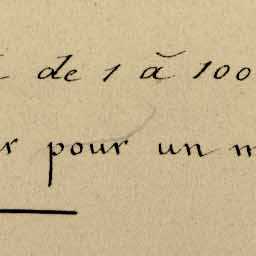 de 1 à 100
pour un